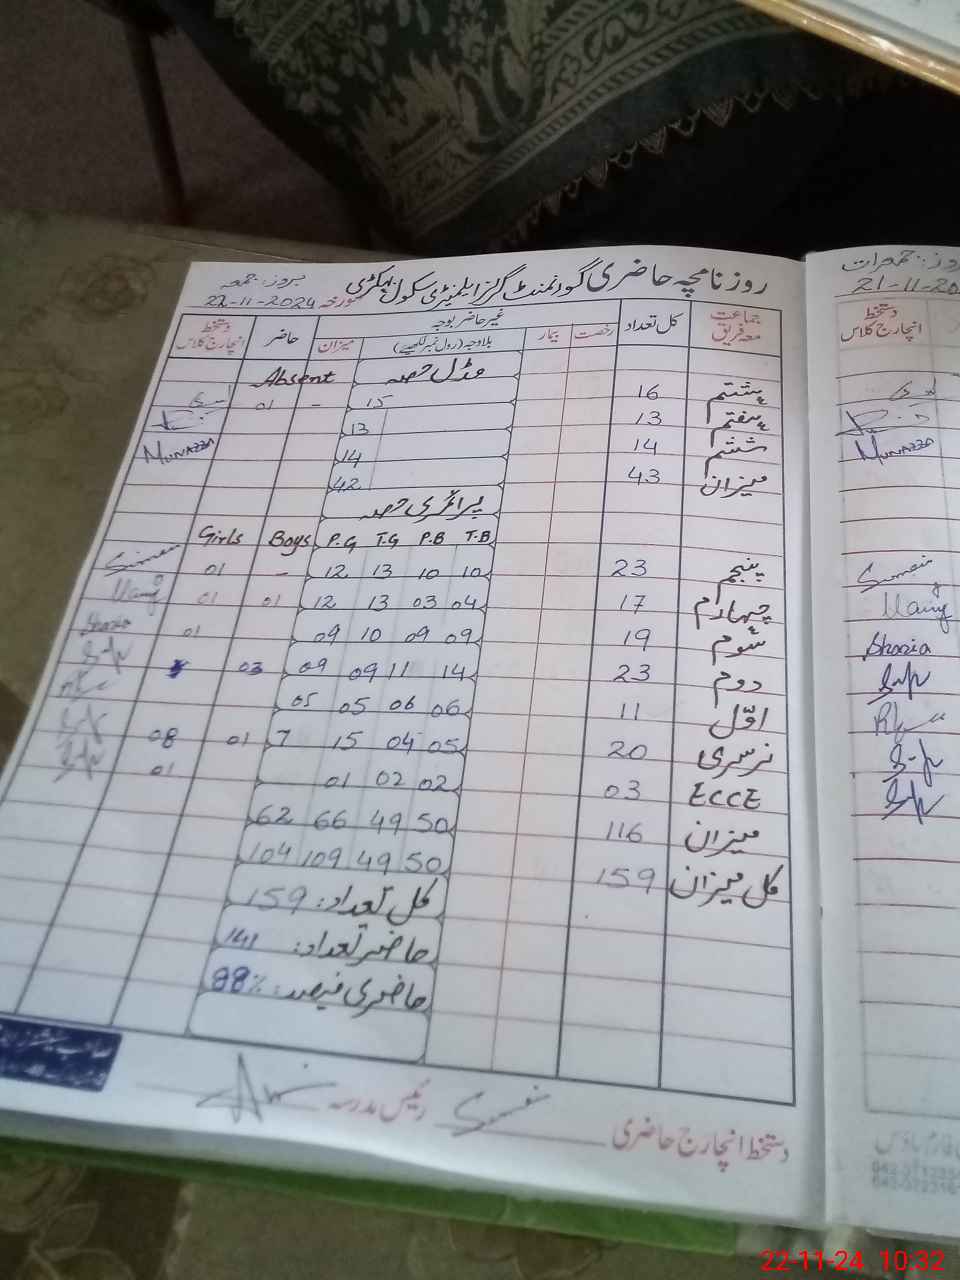 روزنامچہ حاضری گورنمنٹ گرلز ایلیمنٹری سکول
بروز: جمعہ
مورخہ 22-11-2024
جماعت معہ فریق کل تعداد رخصت بیمار غیر حاضر بوجہ حاضر دستخط انچارج کلاس
بلاوجہ (رول نمبر لکھیے) میزان
مڈل حصہ Absent
ہشتم 16 15 - 01
ہفتم 13 13
ششم 14 14 MUNAZZA
میزان 43 42
پرائمری حصہ
Girls Boys P.G T.G P.B T.B
پنجم 23 10 10 13 12 - 01
چہارم 17 04 03 13 12 01 01
سوم 19 09 09 10 09 01 Shazia
دوم 23 14 11 09 09 03
اوّل 11 06 06 05 05
نرسری 20 05 04 15 7 01 08
ECCE 03 02 02 01 01
میزان 116 50 49 66 62
کل میزان 159 50 49 109 104
کل تعداد: 159
حاضر تعداد: 141
حاضری فیصد: 88%
دستخط انچارج حاضری رئیس مدرسہ
روز: جمعرات
21-11-20
دستخط انچارج کلاس
MUNAZZA
Shazia
22-11-24 10:32